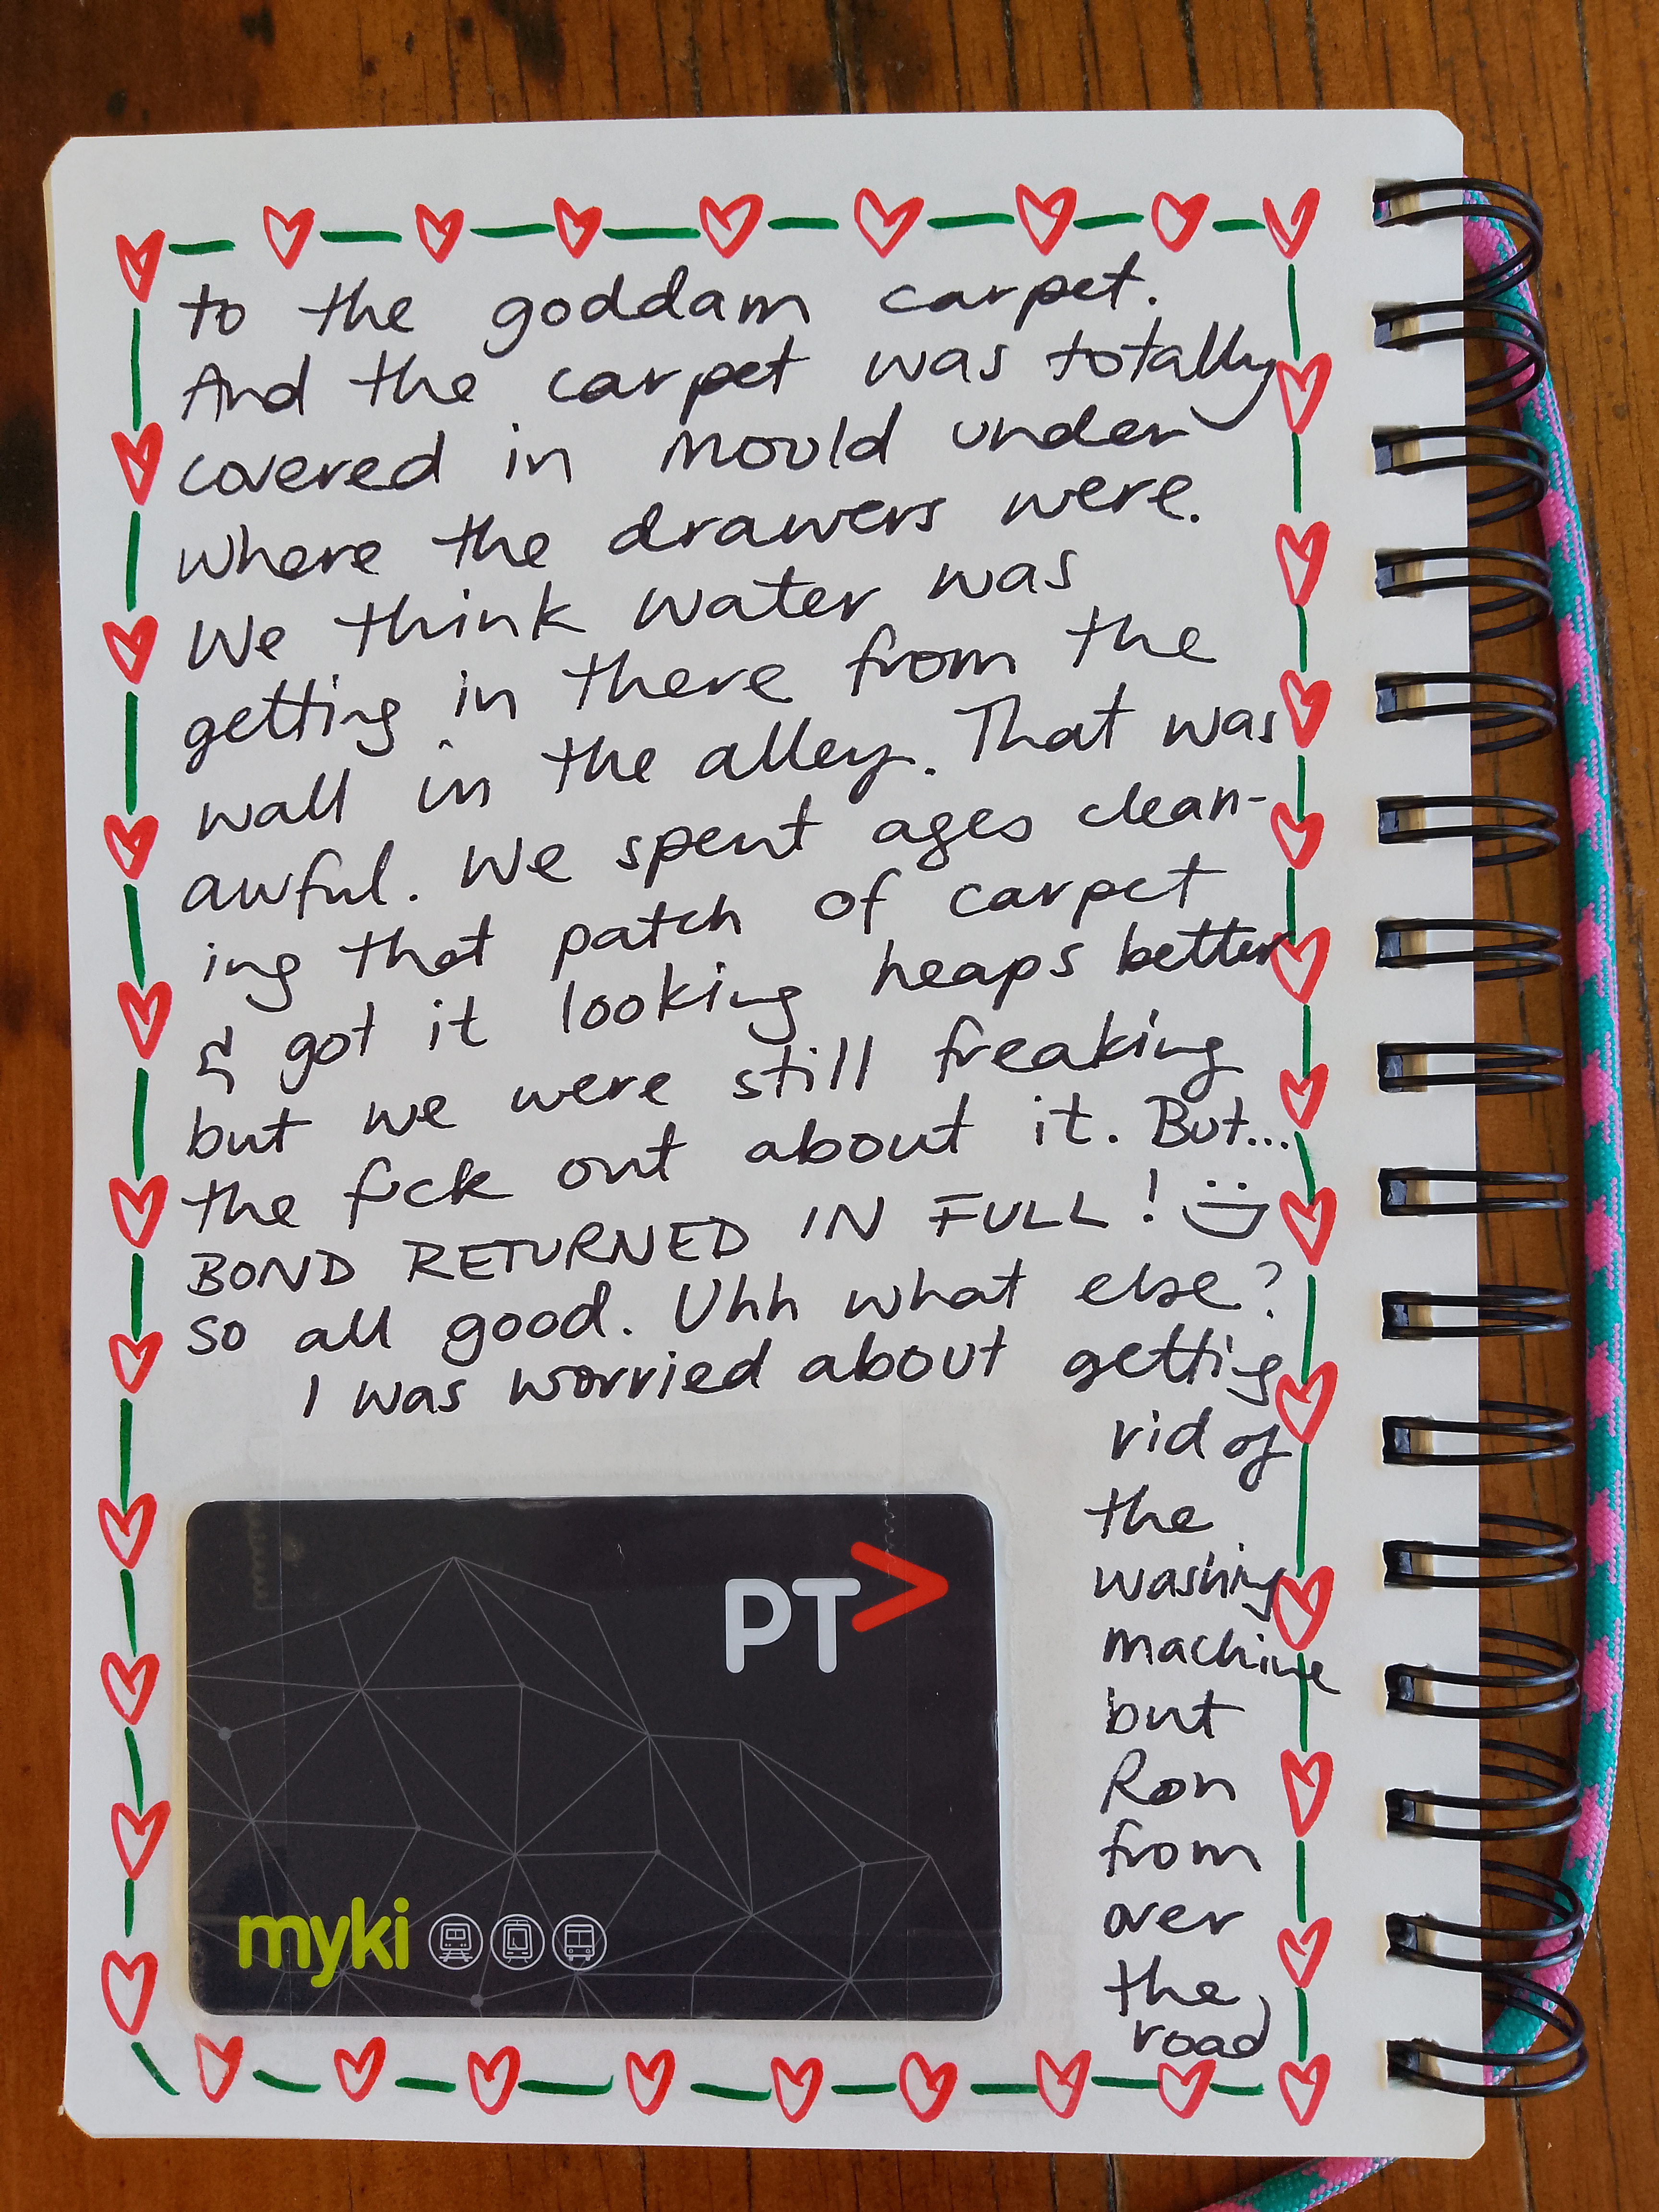 to the goddam carpet.
And the carpet was totally
covered in mould under
where the drawers were.
We think water was
getting in there from the
wall in the alley. That was
awful. We spent ages clean-
ing that patch of carpet
& got it looking heaps better
but we were still freaking
the fuck out about it. But...
BOND RETURNED IN FULL! :)
so all good. Uhh what else?
I was worried about getting
rid of
the
washing
machine
but
Ron
from
over
the
road
PT>
myki